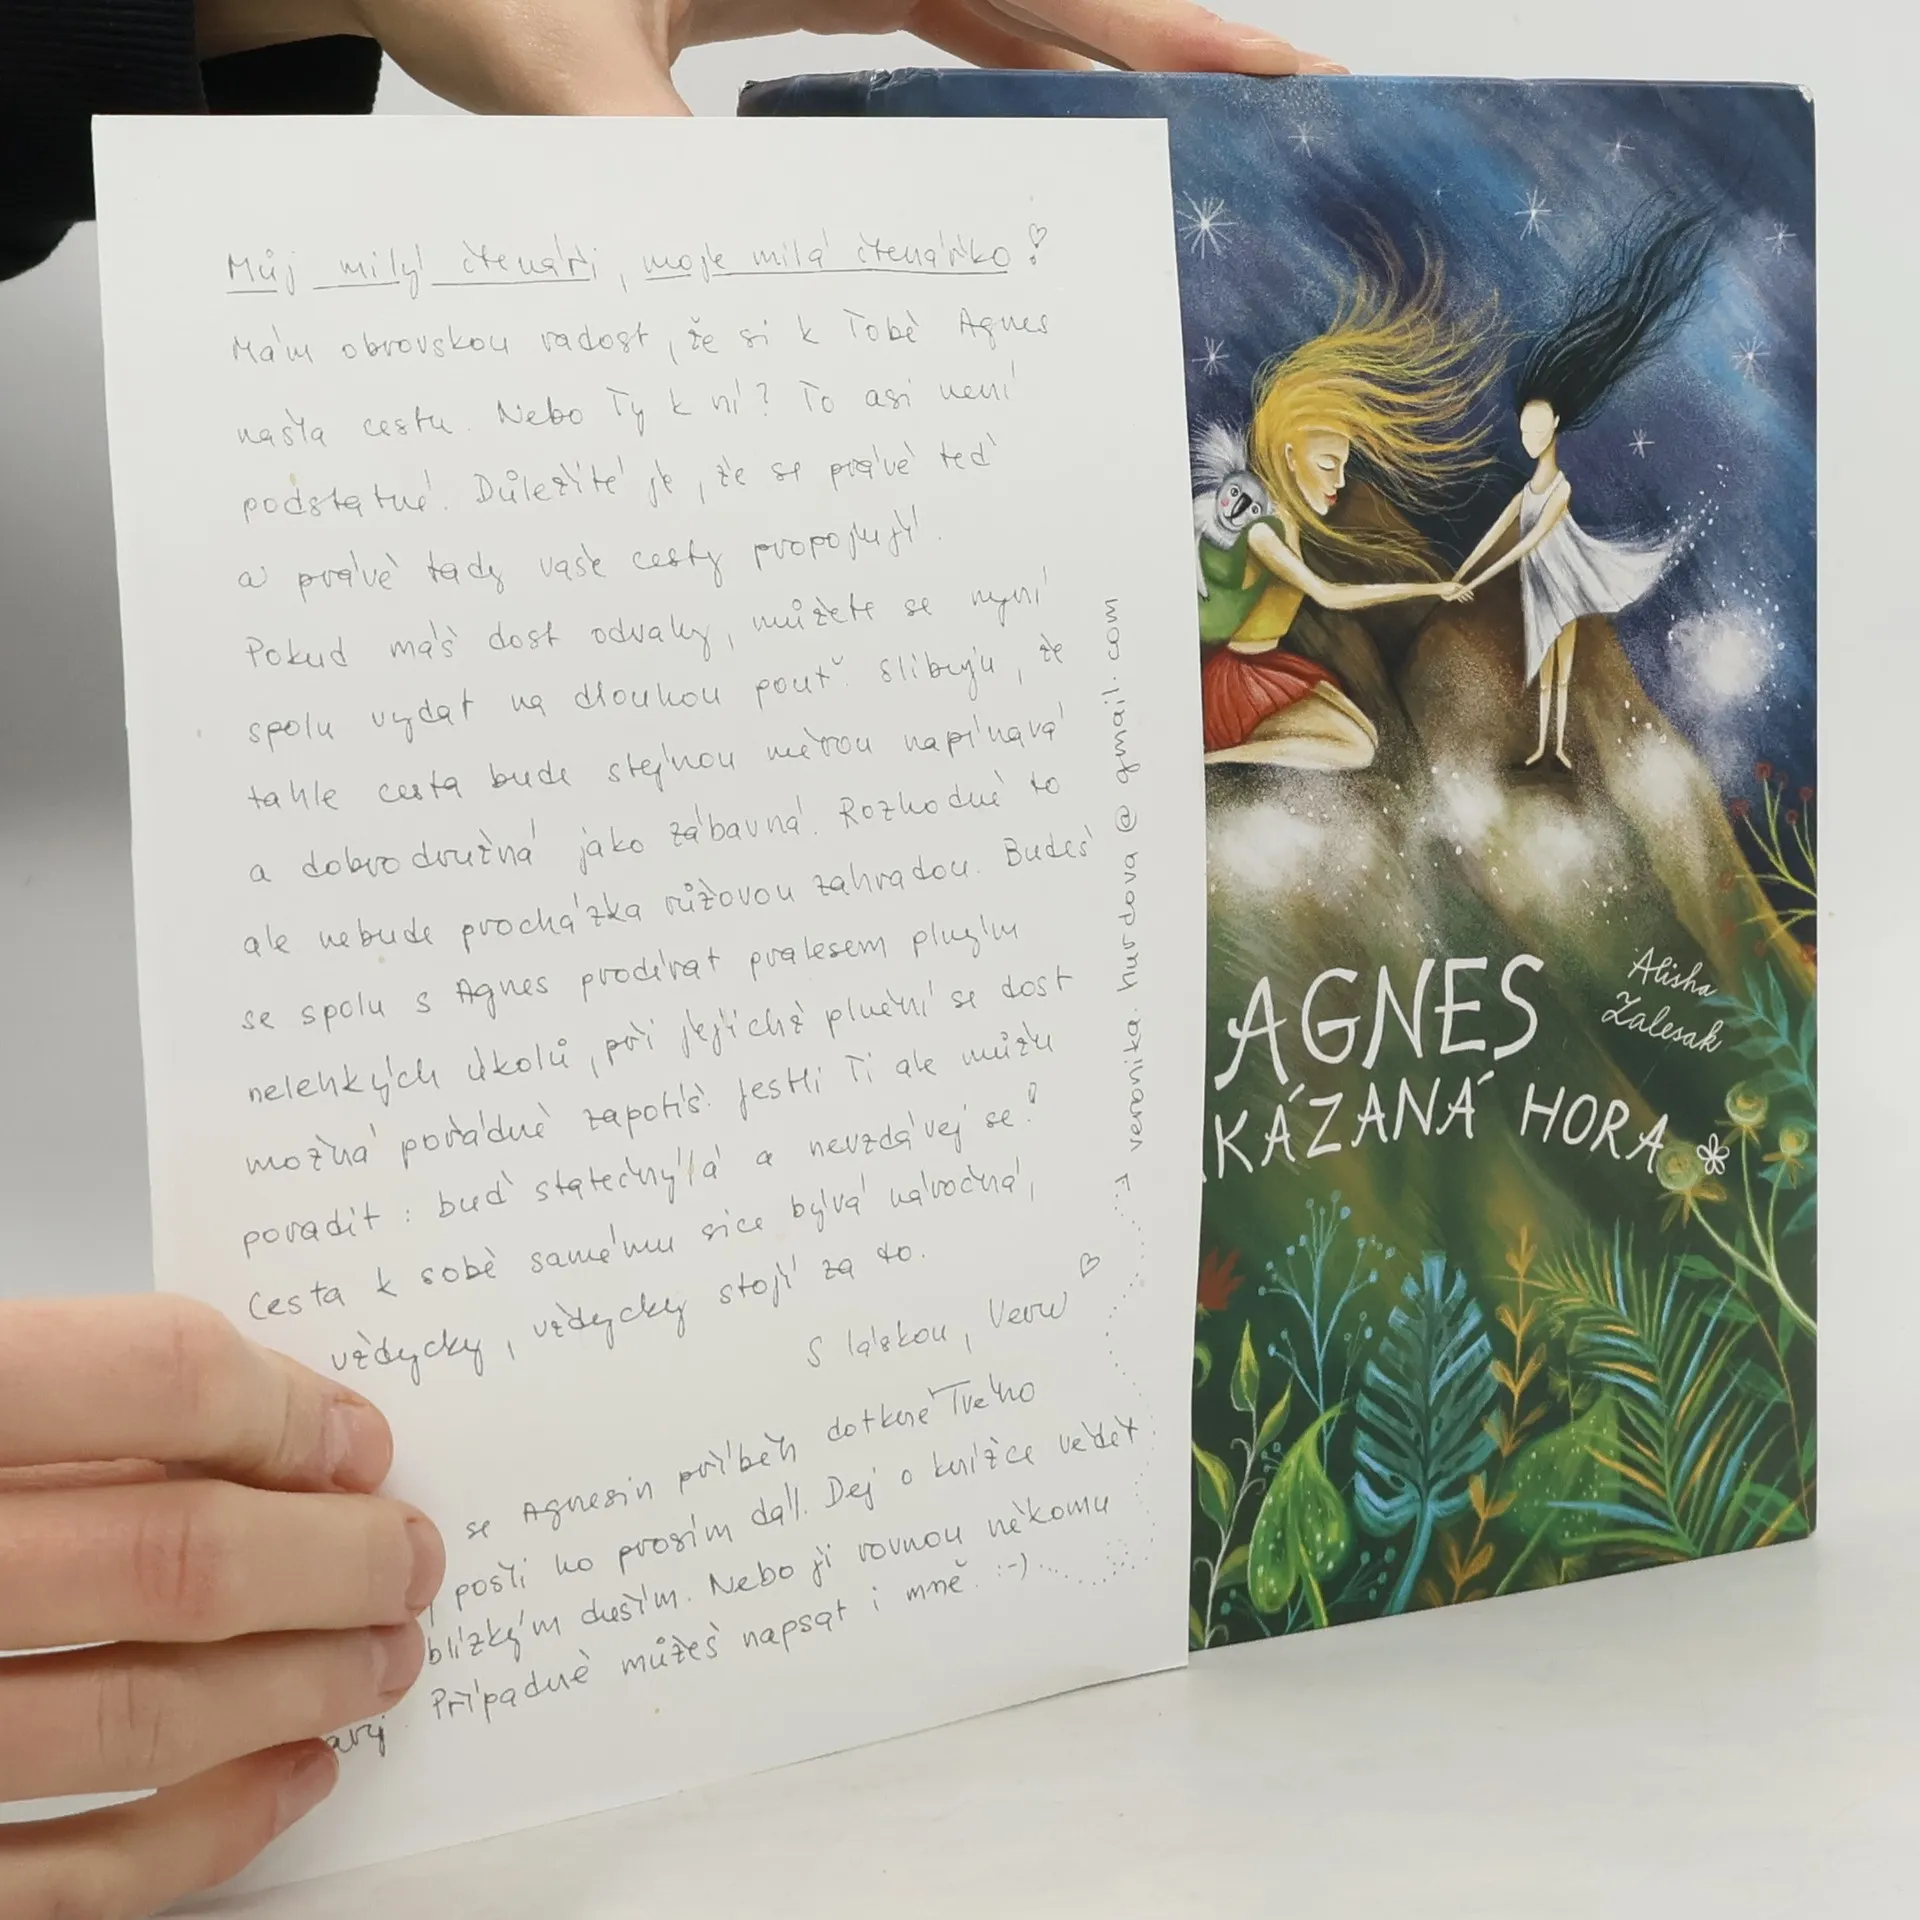 Můj milý čtenáři, moje milá čtenářko!
Mám obrovskou radost, že si k Tobě Agnes
našla cestu. Nebo Ty k ní? To asi není
podstatné. Důležité je, že se právě teď
a právě tady vaše cesty propojují.
Pokud máš dost odvahy, můžete se nyní
spolu vydat na dlouhou pouť. Slibuju, že
tahle cesta bude stejnou měrou napínavá
a dobrodružná jako zábavná. Rozhodně to
ale nebude procházka růžovou zahradou. Budeš
se spolu s Agnes prodírat pralesem plným
nelehkých úkolů, při jejichž plnění se dost
možná pořádně zapotíš. Jestli Ti ale můžu
poradit: buď statečný/á a nevzdávej se!
Cesta k sobě samému sice bývá náročná,
vždycky, vždycky stojí za to.
S láskou, Veru
se Agnesin příběh dotkne Tvého
pošli ho prosím dál. Dej o knížce vědět
blízkým duším. Nebo ji rovnou někomu
Případně můžeš napsat i mně. :-)
→ veronika.hurdova@gmail.com
Alisha
Zalesak
AGNES
KÁZANÁ HORA